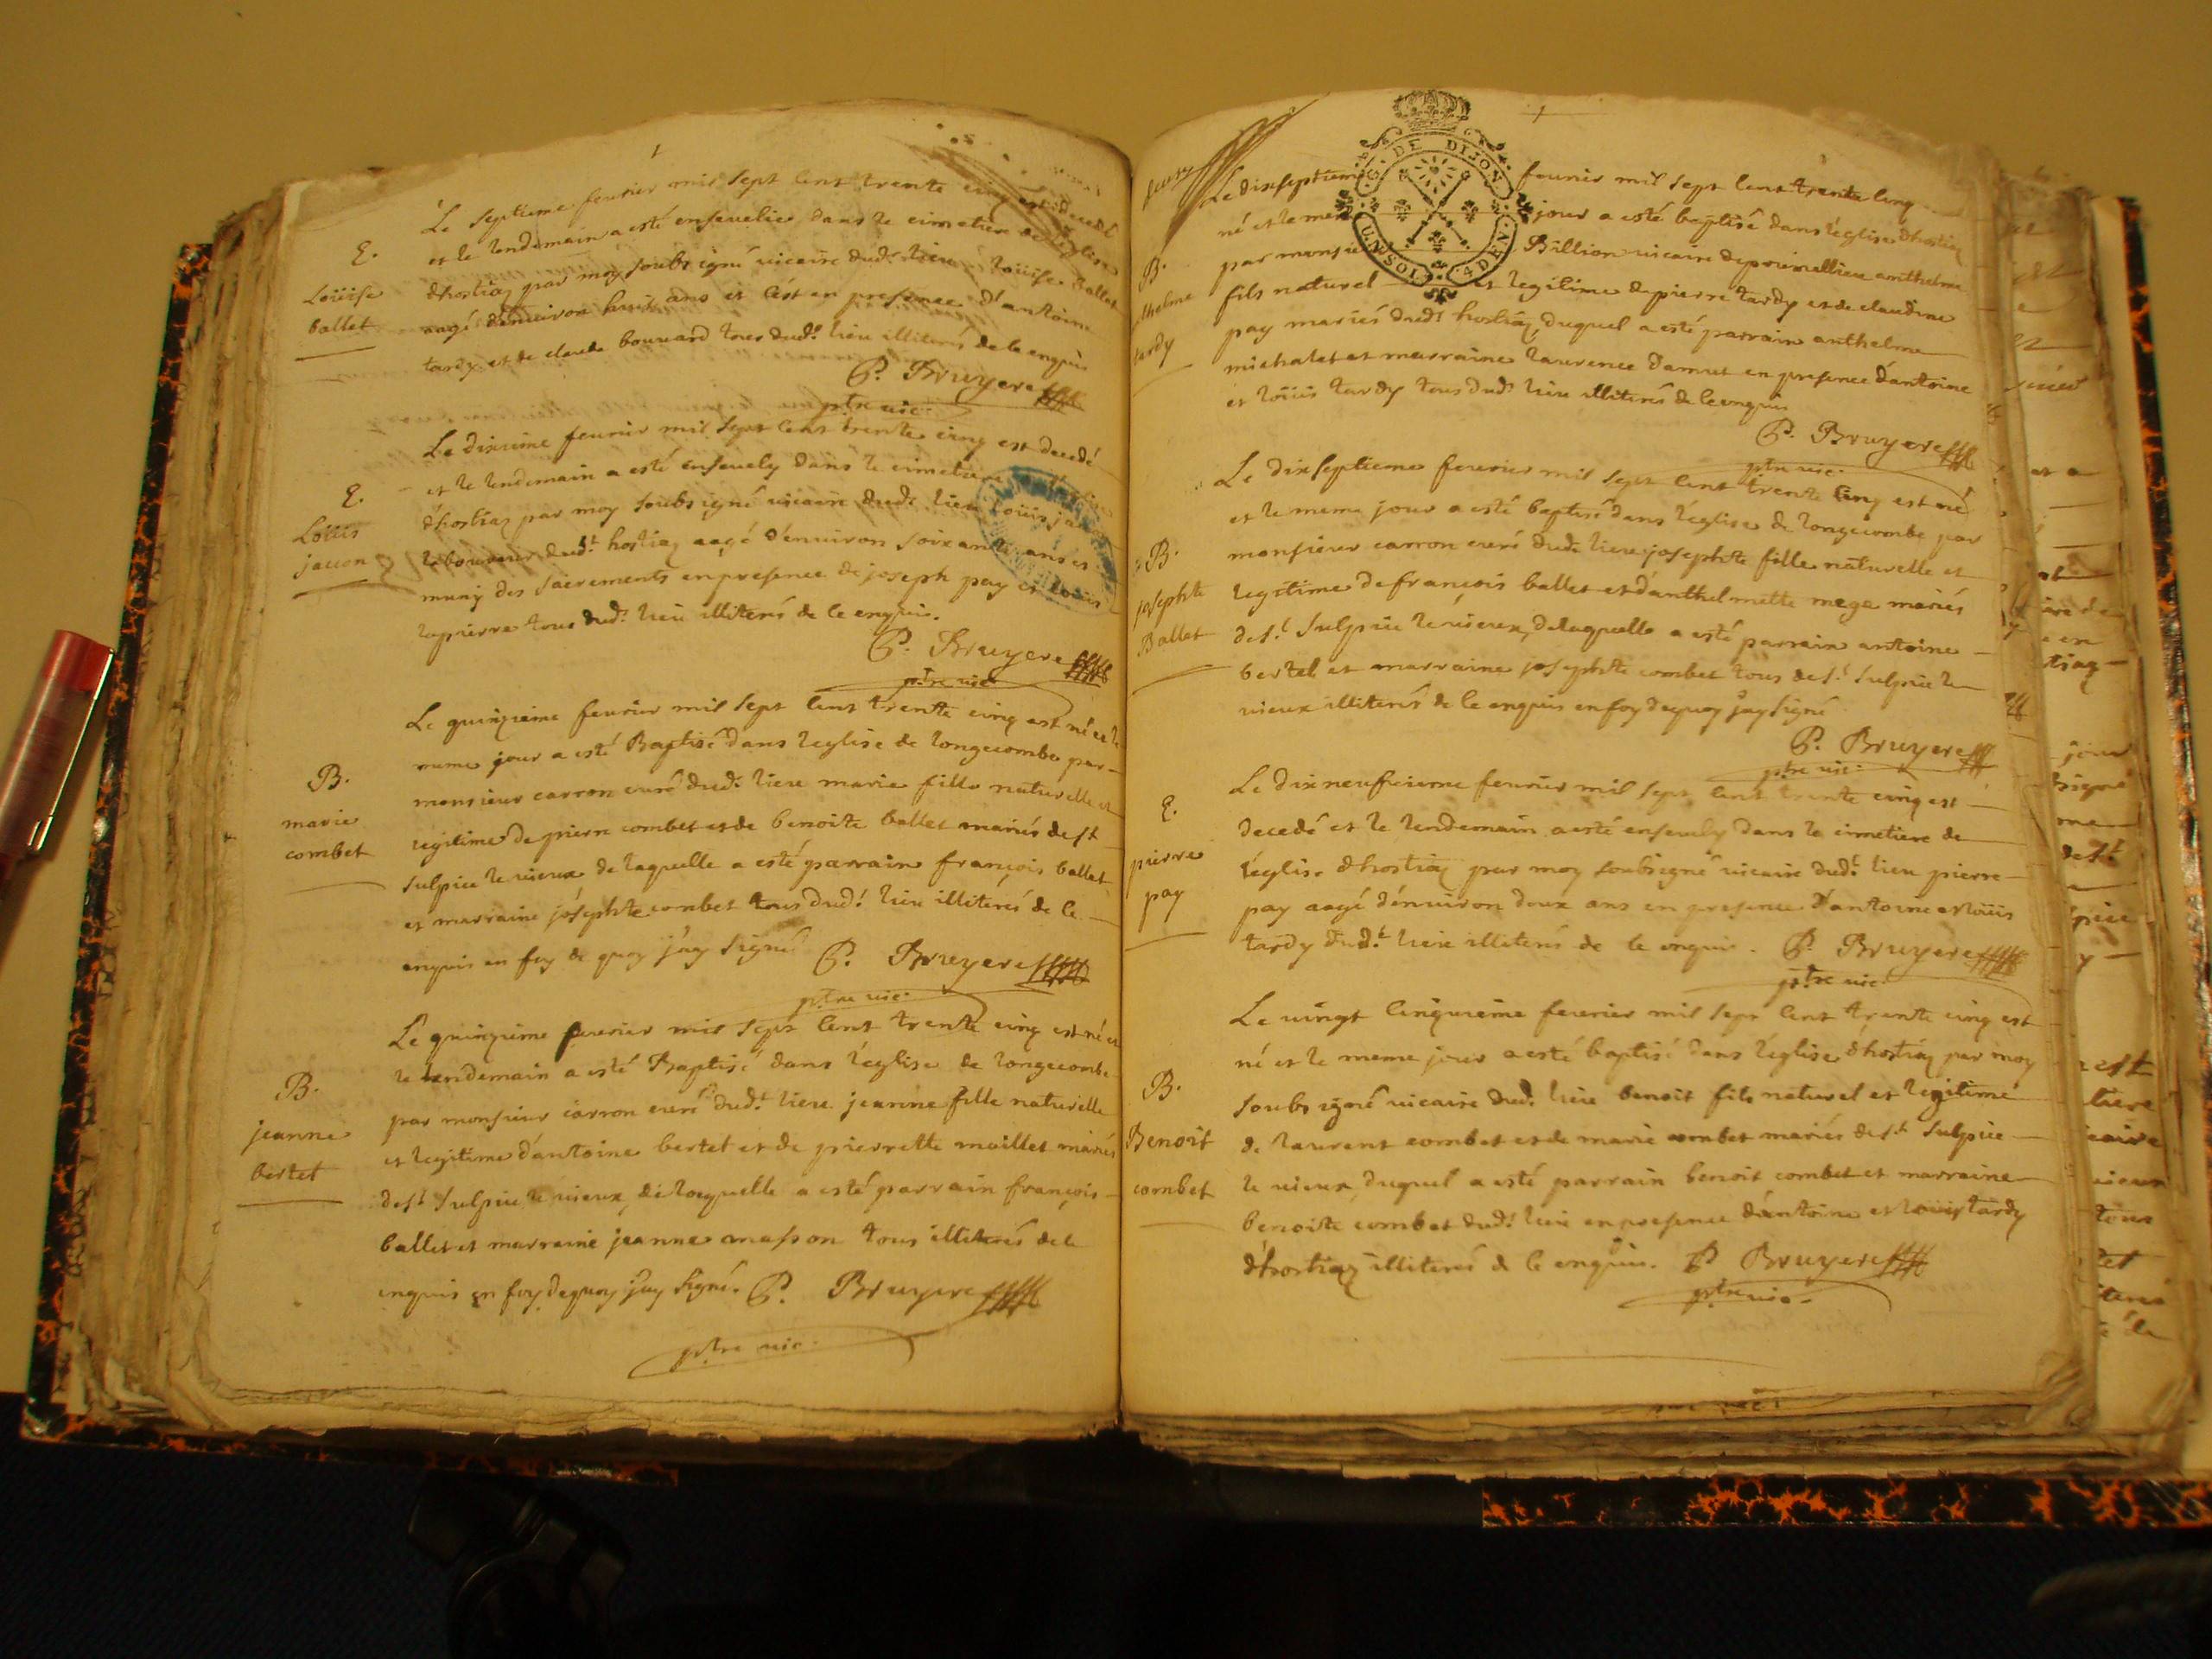 Le septieme feurier mil sept cent trente cinq est decedé
et le lendemain a esté enseuelie dans le cimetiere de l'eglise
E.
d'hostiaz par moy soubsigné uicaire dud.t lieu loüise ballet
Loüise
aagé d'enuiron huit ans et c'est en presence d'antoine
ballet
tardy et de claude bouuard tous dud.t lieu illiterés de ce enquis
P. Bruyere
ptre uic.
Le dixieme feurier mil sept cent trente cinq est decedé
et le lendemain a esté enseuely dans le cimetiere
E.
d'hostiaz par moy soubsigné uicaire dud.t lieu Loüis
Loüis
laboureur dud.t hostiaz aagé d'enuiron soixante ans et
muny des sacrements en presence de joseph pay et louis
lapierre tous dud.t lieu illiterés de ce enquis.
P. Bruyere
ptre uic
Le quinzieme feurier mil sept cent trente cinq est né et le
meme jour a esté Baptisé dans l'eglise de longecombe par
B.
monsieur carron curé dud.t lieu marie fille naturelle et
marie
legitime de pierre combet et de benoite ballet mariés de st
combet
sulpice le uieux de laquelle a esté parrain françois ballet
et marraine josephte combet tous dud.t lieu illiterés de ce
enquis en foy de quoy j'ay signé P. Bruyere
ptre uic.
Le quinzieme feurier mil sept cent trente cinq est né et
le lendemain a esté Baptisé dans l'eglise de longecombe
B.
par monsieur carron curé dud.t lieu jeanne fille naturelle
jeanne
et legitime d'antoine bertet et de pierrette maillet mariés
bertet
de st sulpice le uieux, de laquelle a esté parrain françois
ballet et marraine jeanne masson tous illiterés de ce
enquis en foy de quoy j'ay signé. P. Bruyere
ptre uic.
G. DE DIJON
UN SOL 4 DEN.
Le dixseptieme feurier mil sept cent trente cinq
né et le meme jour a esté baptisé dans l'eglise d'hostiaz
B.
par monsieur Billion uicaire de premillieu anthelme
thelme
fils naturel et legitime de pierre tardy et de claudine
tardy
pay mariés dud.t hostiaz, duquel a esté parrain anthelme
michalet et marraine laurence damut en presence d'antoine
et loüis tardy tous dud.t lieu illiterés de ce enquis
P. Bruyere
ptre uic.
Le dixseptieme feurier mil sept cent trente cinq est né
et le meme jour a esté baptisé dans l'eglise de longecombe par
B.
monsieur carron curé dud.t lieu josephte fille naturelle et
josephte
legitime de françois ballet et d'anthelmette mege mariés
Ballet
de s.t sulpice le uieux, de laquelle a esté parrain antoine
bertet et marraine josephte combet tous de s.t sulpice le
uieux illiterés de ce enquis en foy de quoy j'ay signé
P. Bruyere
ptre uic.
Le dixneufuieme feurier mil sept cent trente cinq est
E.
decedé et le lendemain a esté enseuely dans le cimetiere de
pierre
l'eglise d'hostiaz par moy soubsigné uicaire dud.t lieu pierre
pay
pay aagé d'enuiron deux ans en presence d'antoine et loüis
tardy dud.t lieu illiterés de ce enquis. P. Bruyere
ptre uic.
Le uingt cinquieme feurier mil sept cent trente cinq est
né et le meme jour a esté baptisé dans l'eglise d'hostiaz par moy
B.
soubsigné uicaire dud.t lieu benoit fils naturel et legitime
Benoit
de laurent combet et de marie combet mariés de s.t sulpice
combet
le uieux, duquel a esté parrain benoit combet et marraine
benoite combet dud.t lieu en presence d'antoine et loüis tardy
d'hostiaz illiterés de ce enquis. P. Bruyere
ptre uic.